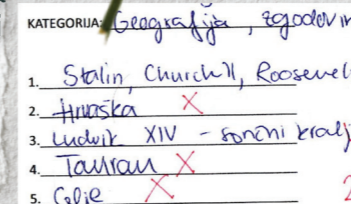 KATEGORIJA: Geografija, zgodovin
1. Stalin, Churchill, Roosevel
2. Hrvaška X
3. Ludvik XIV - sončni kralj
4. X
5. Celje X
2